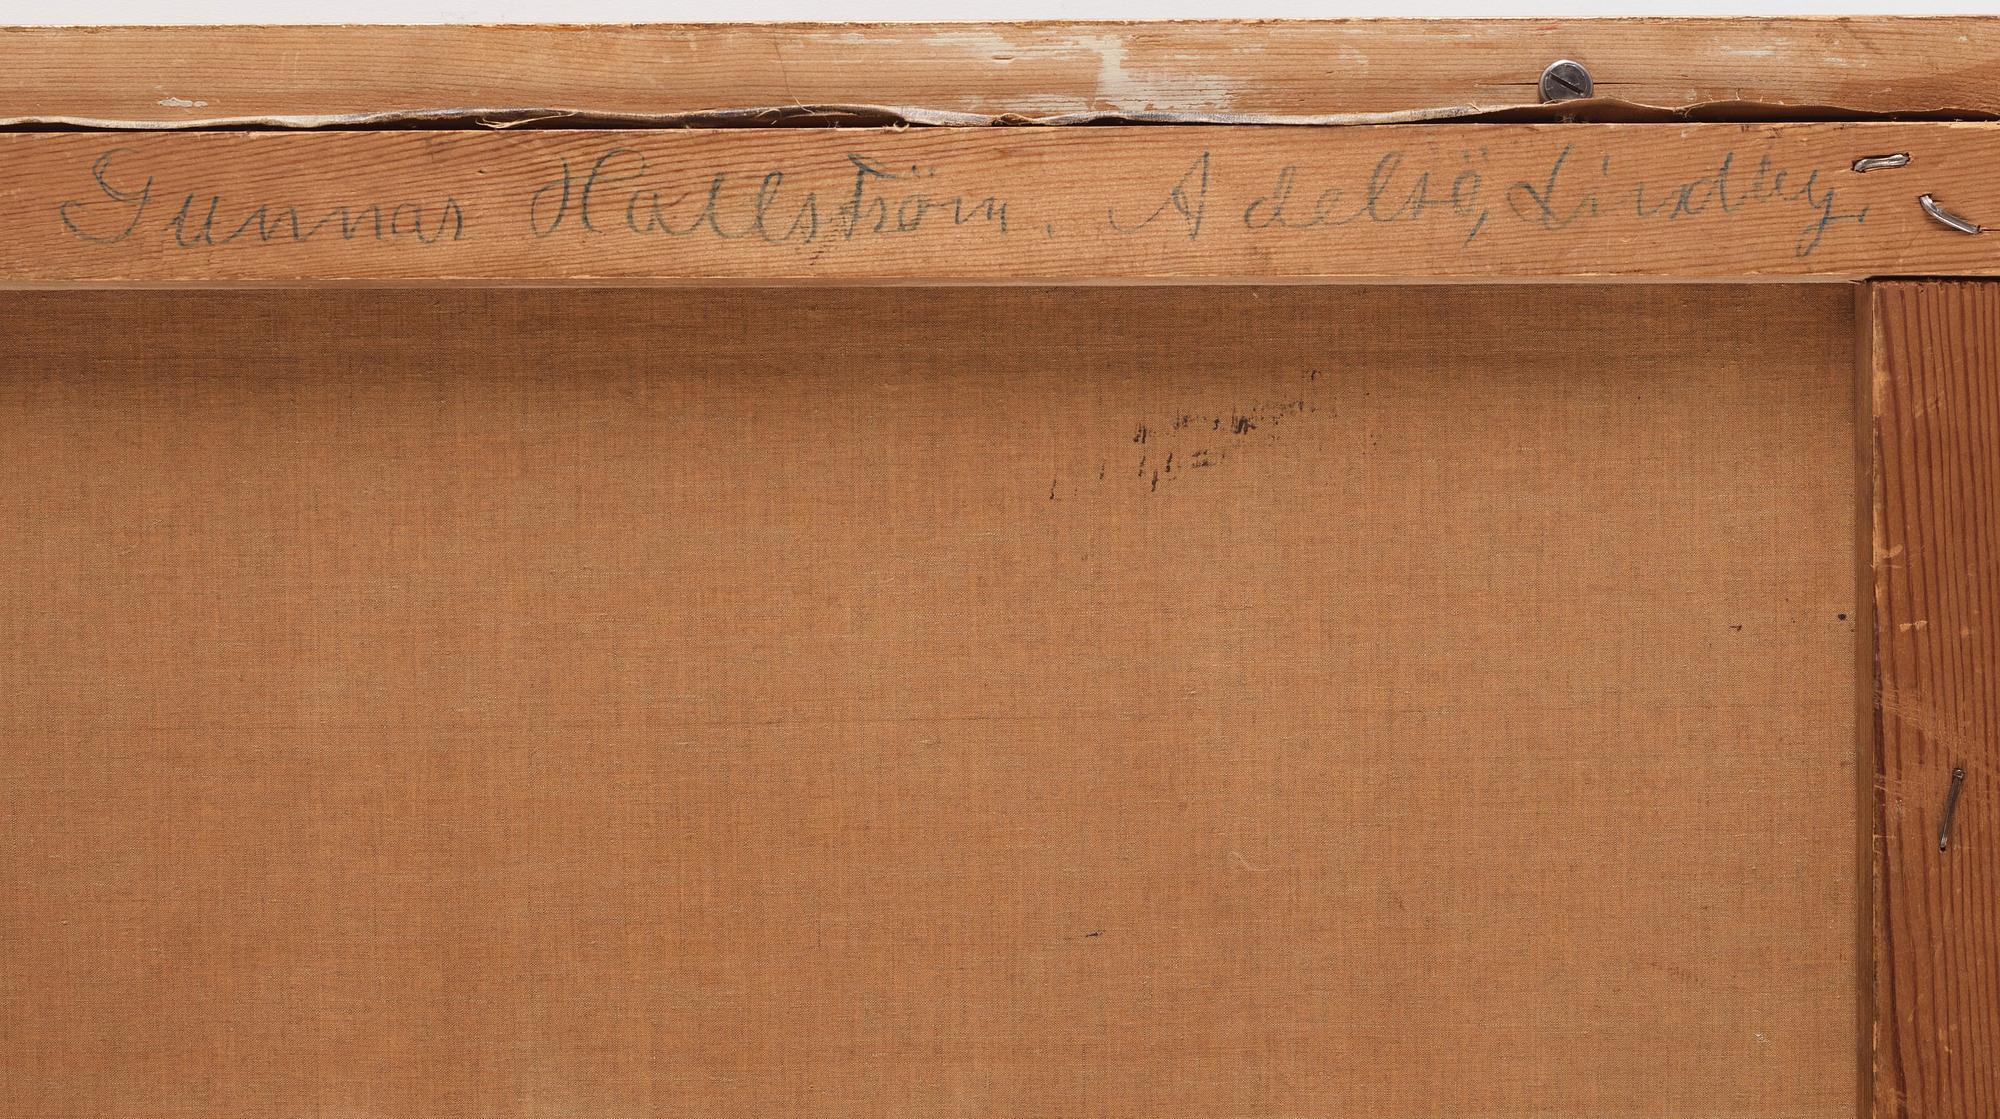 Gunnar Hallström. Adelsö, Lindby.